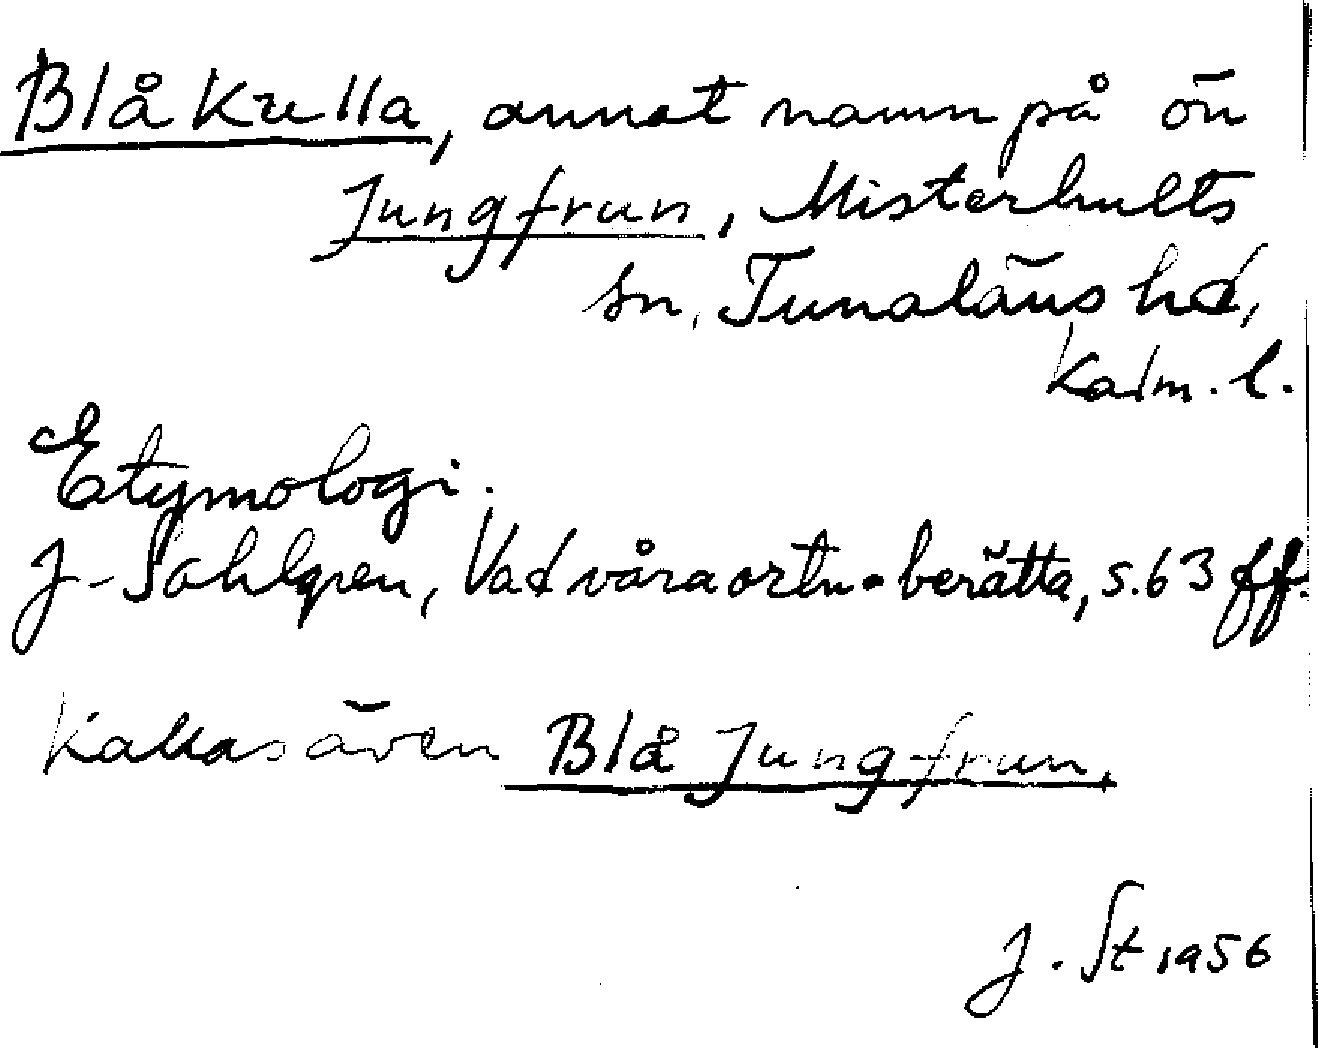 Blåkulla, annat namn på ön
Jungfrun, Misterhults
sn, Tunaläns hd,
Kalm. l.
Etymologi.
J. Sahlgren, Vad våra ortn. berätta, s. 63 ff.
Kallas även Blå Jungfrun.
J. St 1956